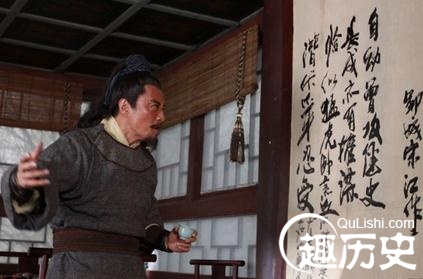 鄆城宋江作
自幼曾攻經史
長成亦有權謀
恰似猛虎卧荒
潛伏爪牙忍受
QuLishi.com
趣历史